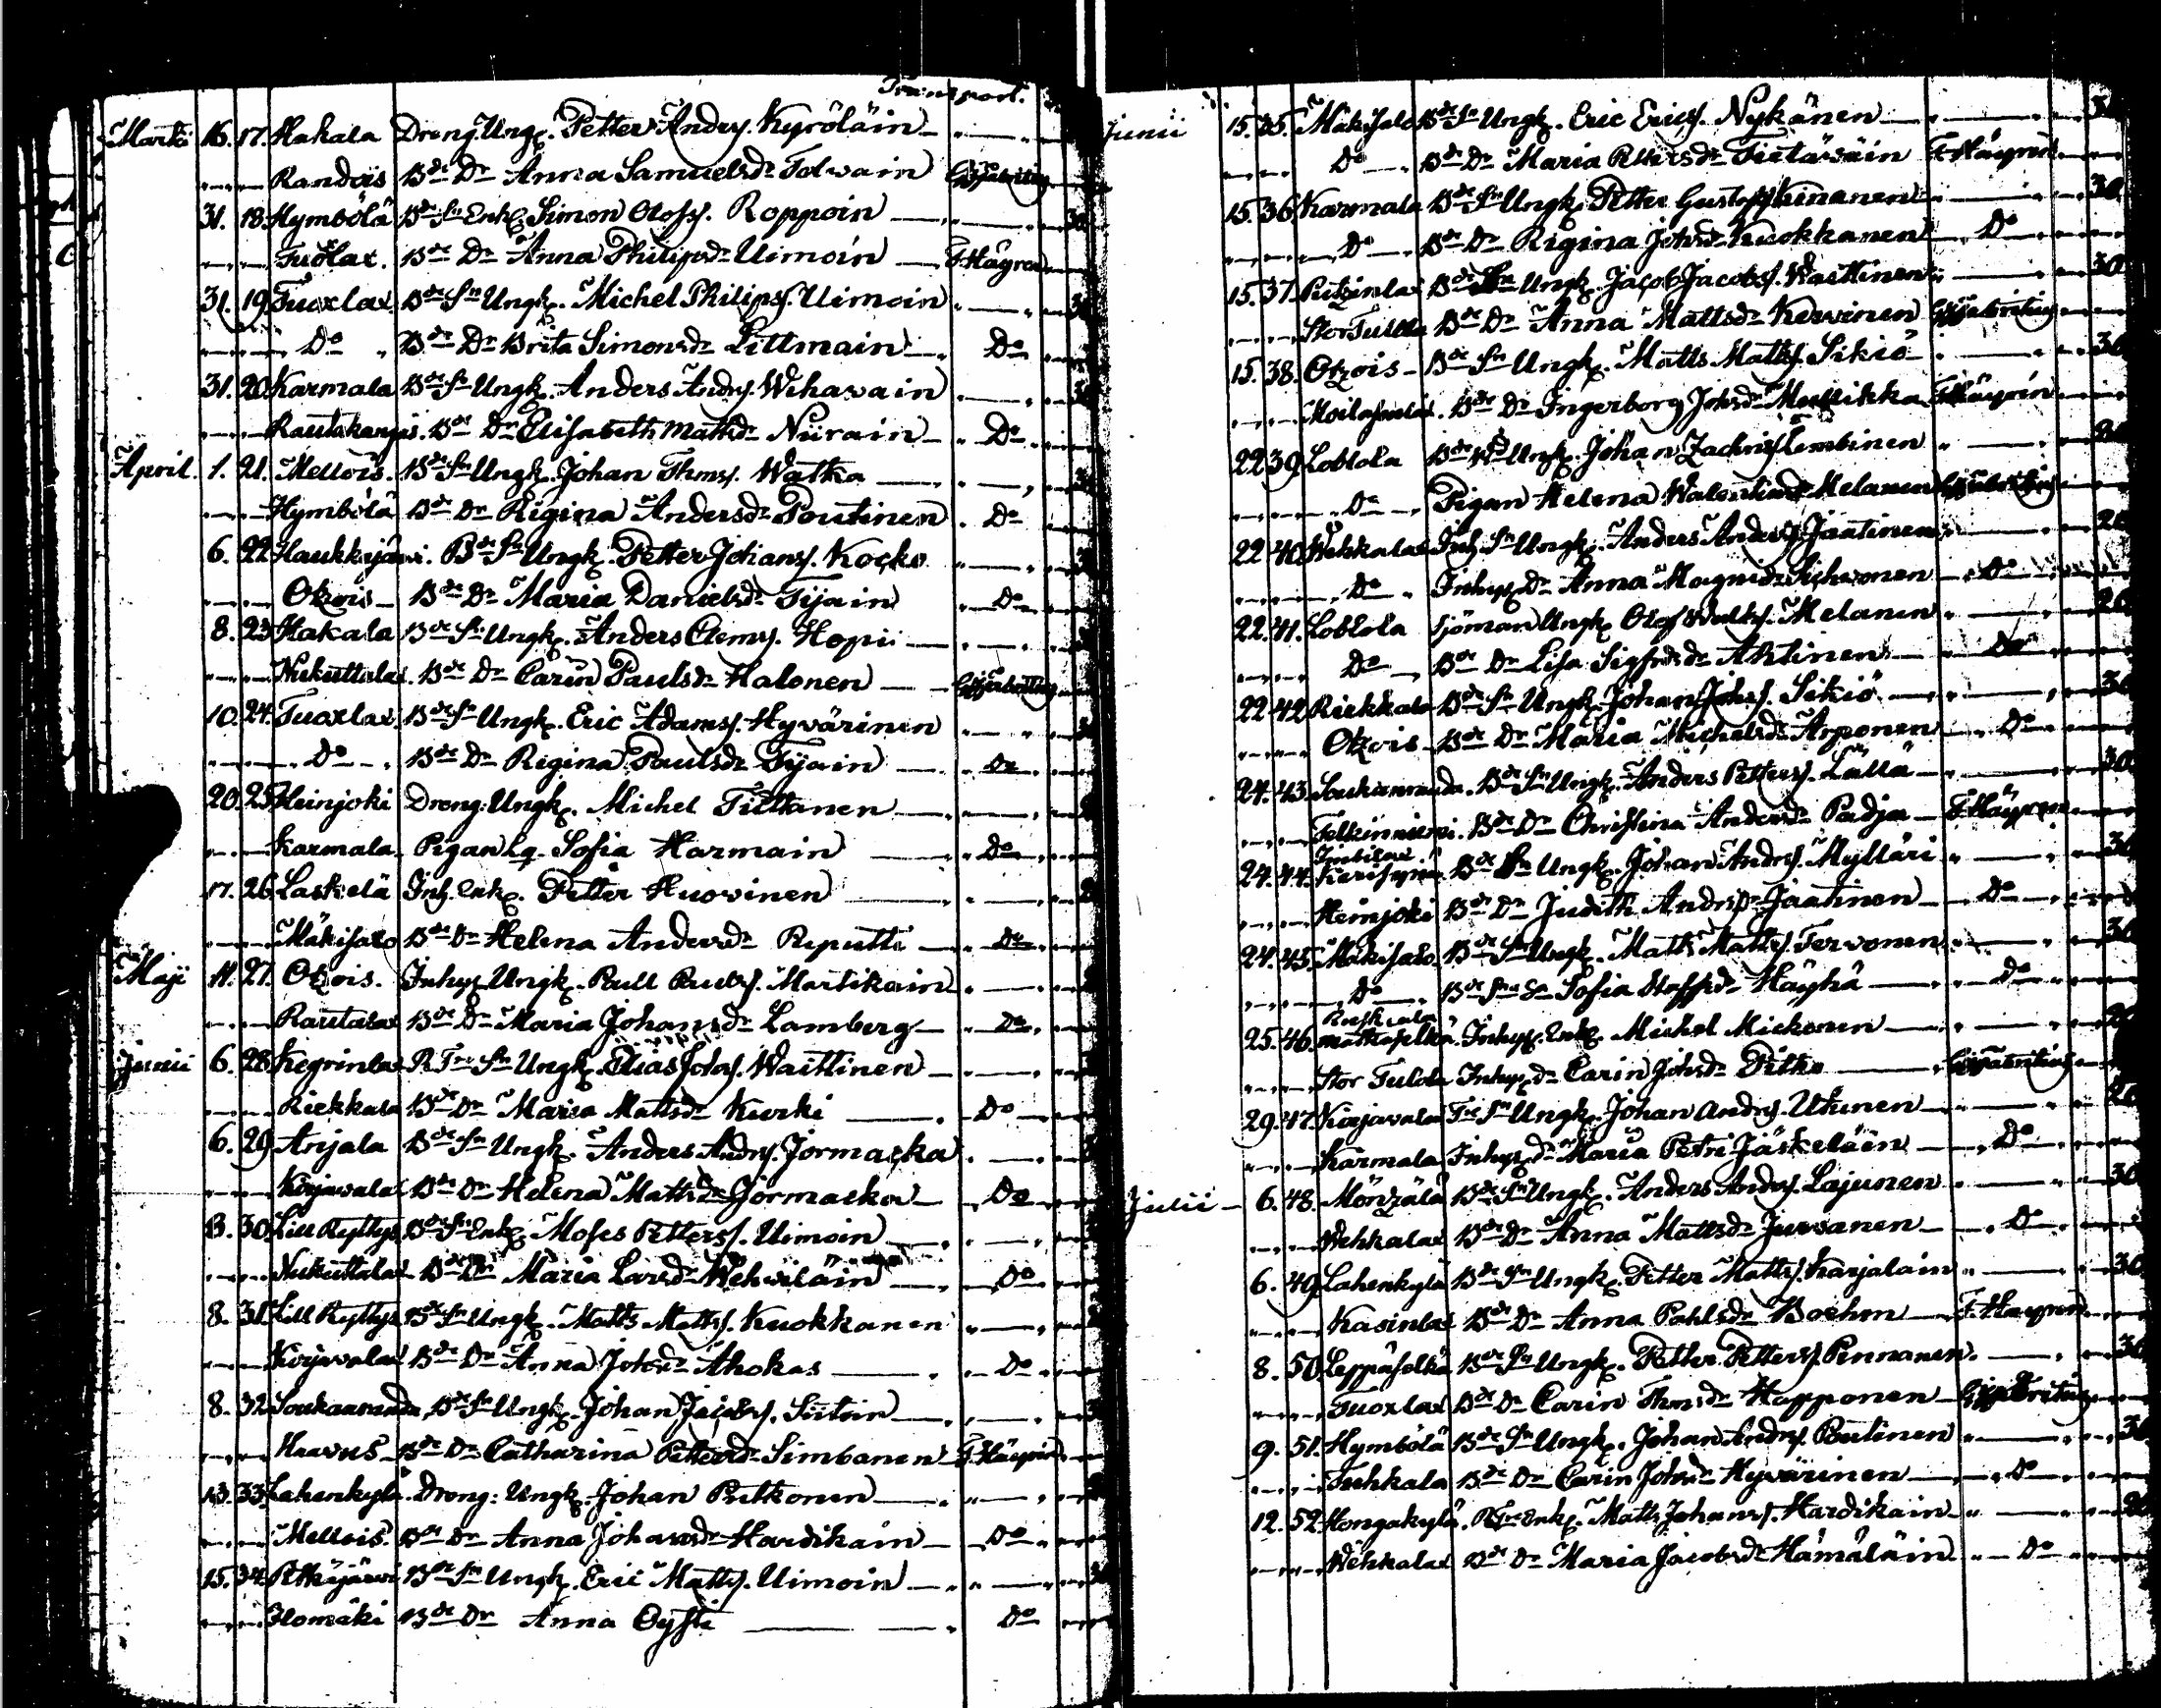 Transport.
Martii 16. 17. Hakala Dreng Ungk. Petter Anders. Kyröläin
Randois Bde Dr Anna Samuelsdr Tolvain
31. 18. Hymbölä Bde Sn Enkl. Simon Olofs. Roppoin 30
Tuoxlax. Bde Dr Anna Philipsdr Uimoin F. Häyren
31. 19. Tuoxlax Bde Sn Ungk. Michel Philips. Uimoin 30
Do Bde Dr Brita Simonsdr Littmain Do
31. 20. Karmala Bde Sn Ungk. Anders Andrs. Wehavain 30
Rautakangas. Bde Dr Elisabeth Mattsdr Niirain Do
April. 1. 21. Mellois. Bde Sn Ungk. Johan Thms. Watka
Hymbölä Bde Dr Rigina Andersdr Poutinen Do
6. 22. Haukkajärvi. Bde Sn Ungk. Petter Johans. Kocko
Otzois Bde Dr Maria Danielsdr Tijain Do
8. 23. Hakala Bde Sn Ungk. Anders Clems. Hopii
Nukuttalax. Bde Dr Carin Paulsdr Halonen
10. 24. Tuoxlax. Bde Sn Ungk. Eric Adams. Hyvärinen
Do Bde Dr Regina Paulsdr Tijain Do
20. 25. Heinjoki Dreng: Ungk. Michel Tiittanen
Karmala Pigan Lq. Sofia Harmain Do
17. 26. Laskelä Inh. Enkl. Petter Huovinen
Mäkisalo Bde Dr Helena Andersdr Reputti Do
Maji 11. 27. Otzois. Inhys Ungk. Pull Pauls. Martikain
Rautalax Bde Dr Maria Johansdr Lamberg Do
Junii 6. 28. Kegrinlax R Tr Sn Ungk. Elias Johs. Waittinen
Riekkala Bde Dr Maria Mattsdr Kurki Do
6. 29. Anjala Bde Sn Ungk. Anders Andrs. Jormacka
Kirjavalax Bde Dr Helena Mattsdr Jormacka Do
13. 30. Lill Ryttys Bde Sn Enkl. Moses Petters. Uimoin
Nukuttalax Bde Dr Maria Larsdr Wehviläin Do
8. 31. Lill Ryttys Bde Sn Ungk. Matts Matts. Kuokkanen
Kirjavalax Bde Dr Anna Johsdr Ahokas Do
8. 32. Soukanranda, Bde Sn Ungk. Johan Jacobs. Siitoin
Haavus Bde Dr Catharina Pettersdr Simbanen F. Häyren
13. 33. Lahenkylä. Dreng: Ungk. Johan Putkonen
Mellois. Bde Dr Anna Johansdr Hardikain Do
15. 34. Pitkäjärvi Bde Sn Ungk. Eric Matts. Uimoin
Ilomäki Bde Dr Anna Oysti Do
Junii 15. 35. Mäkisalo Bde Sn Ungk. Eric Erics. Nykänen
Do Bde Dr Maria Pettersdr Tietäväin F. Häyren
15. 36. Karmala Bde Sn Ungk. Petter Gustafs. Kinanen 30
Do Bde Dr Rigina Johsdr Kuokkanen Do
15. 37. Putzinlax Bde Sn Ungk. Jacob Jacobs. Waittinen 30
Stor Tulola Bde Dr Anna Mattsdr Kervinen
15. 38. Otzois Bde Sn Ungk. Matts Matts. Sikiö 30
Bde Dr Ingerborg Johsdr F. Häyrén
22. 39. Loblola Ungk. Johan Zachris. Lembinen
Do Pigan Helena Walentinsdr Melanen
22. 40. Wehkalax Inh. Sn Ungk. Anders Anders. Jaatinen 20
Do Inhys Dr Anna Magnidr Sichvonen Do
22. 41. Loblola Sjöman Ungk. Olof Walks. Melanen 20
Do Bde Dr Lisa Sigfredsdr Ahtinen Do
22. 42. Riekkala Bde Sn Ungk. Johan Johs. Sikiö 30
Otzois Bde Dr Maria Michelsdr Arponen Do
24. 43. Soukanranda. Bde Sn Ungk. Anders Petters. Lällä 30
Telkinniemi. Bde Dr Christina Andersdr Padja F. Häyren
24. 44. Bde Sn Ungk. Johan Andrs. Mylläri 30
Heinjoki Bde Dr Judith Andersdr Jaatinen Do
24. 45. Mäkisalo. Bde Sn Ungk. Matts Matts. Tervonen 30
Do Bde Sofia Staffsdr Häyhä Do
25. 46. Inhys. Enkl. Michel Mickonen 20
Stor Tulola Inhys Dr Carin Johsdr Pitko
29. 47. Kirjavalax Tr Sn Ungk. Johan Andrs. Utunen 20
Karmala Inhys Dr Maria Petri Jäskeläin Do
Julii 6. 48. Mönzälä Bde Sn Ungk. Anders Andrs. Lajunen 30
Wehkalax Bde Dr Anna Mattsdr Jurvanen Do
6. 49. Lahenkylä Bde Sn Ungk. Petter Matts. Karjalain 30
Kasinlax Bde Dr Anna Pahlsdr Boehm F. Häyren
8. 50. Leppäselkä Bde Sn Ungk. Petter Petters. Pennanen. 30
Tuoxlax Bde Dr Carin Thmsdr Happonen
9. 51. Hymbölä Bde Sn Ungk. Johan Andrs. Poutinen 30
Tuhkala Bde Dr Carin Johsdr Hyvärinen Do
12. 52. Hongakylä. R Tr Enkl. Matts Johans. Hardikain
Wehkalax Bde Dr Maria Jacobsdr Hämäläin Do